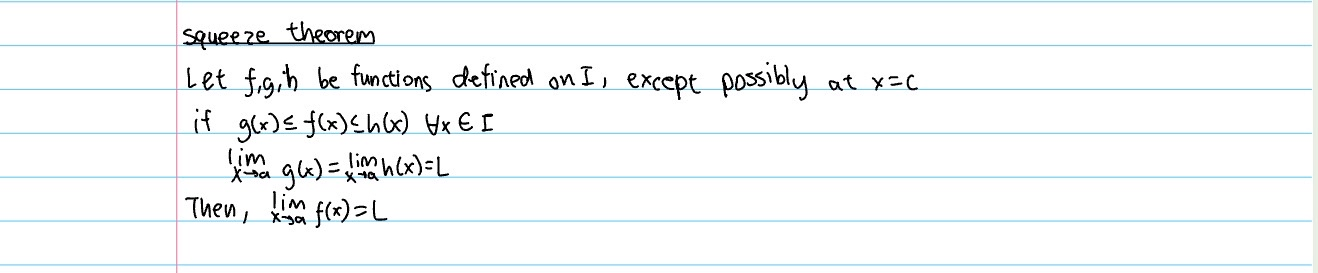 squeeze theorem
Let f,g,h be functions defined on I, except possibly at x=c
if g(x)≤f(x)≤h(x) ∀x∈I
lim x→a g(x)=lim x→a h(x)=L
Then, lim x→a f(x)=L